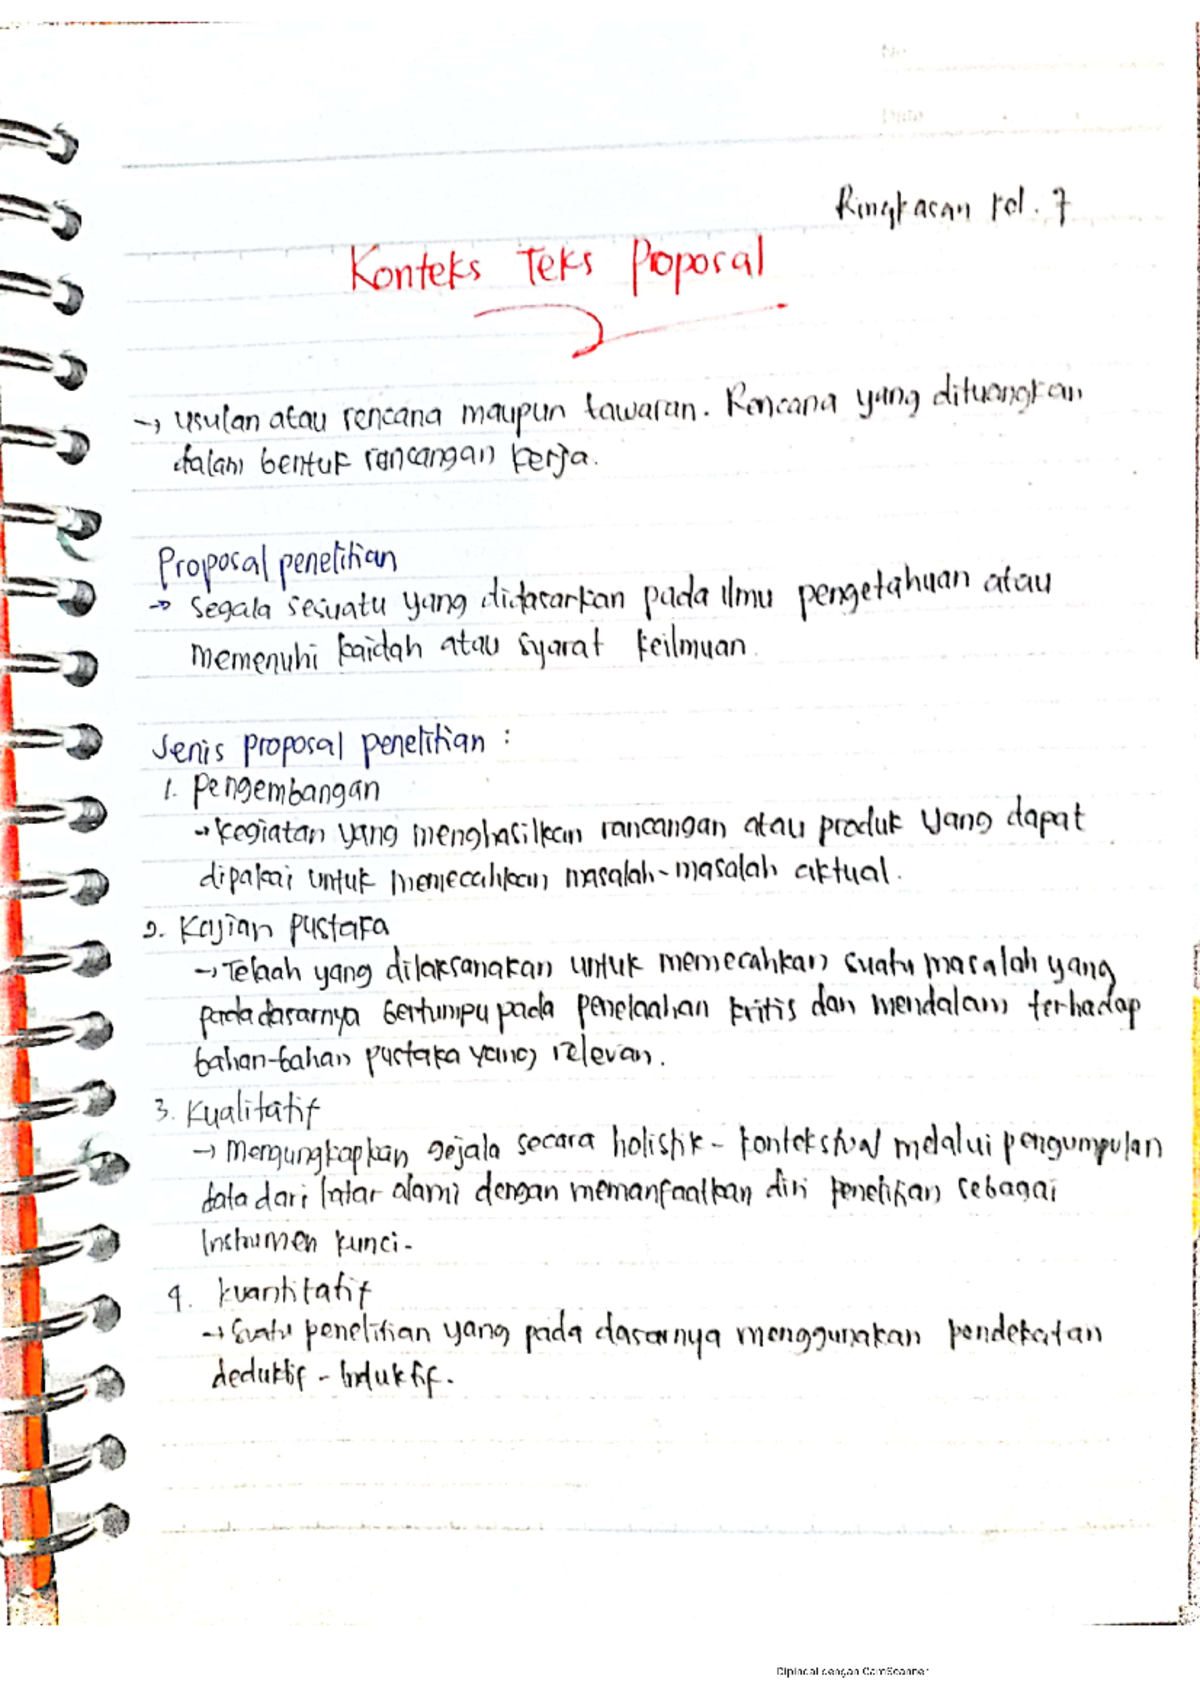 No
Date
Ringkasan kel. 7
Konteks Teks Poposal
→ usulan atau rencana maupun tawaran. Rencana yang dituangkan
dalam bentuk rancangan kerja.
Proposal penelitian
→ Segala sesuatu yang didasarkan pada ilmu pengetahuan atau
memenuhi kaidah atau syarat keilmuan.
Jenis proposal penelitian :
1. Pengembangan
→ kegiatan yang menghasilkan rancangan atau produk yang dapat
dipakai untuk memecahkan masalah-masalah aktual.
2. Kajian pustaka
→ Telaah yang dilaksanakan untuk memecahkan suatu masalah yang
pada dasarnya bertumpu pada penelaahan kritis dan mendalam terhadap
bahan-bahan pustaka yang relevan.
3. Kualitatif
→ Mengungkapkan gejala secara holistik - kontekstual melalui pengumpulan
data dari latar alami dengan memanfaatkan diri penelitian sebagai
Instrumen kunci.
4. kuantitatif
→ Suatu penelitian yang pada dasarnya menggunakan pendekatan
deduktif - Induktif.
Dipindai dengan CamScanner